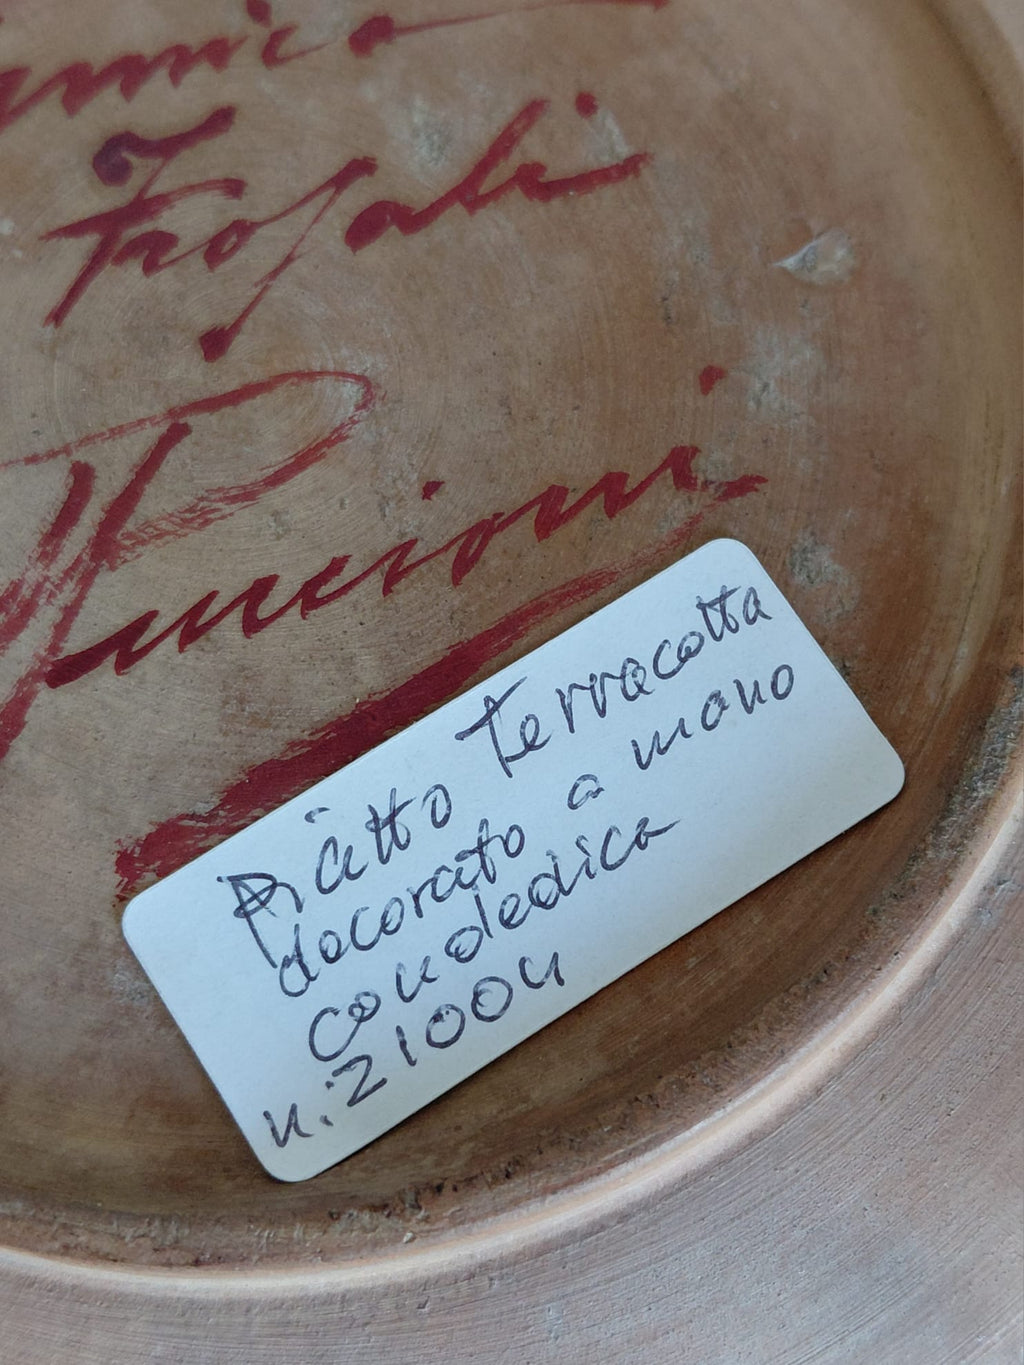 Frosali
Puccioni
Piatto terracotta
decorato a mano
con dedica
n: 21004